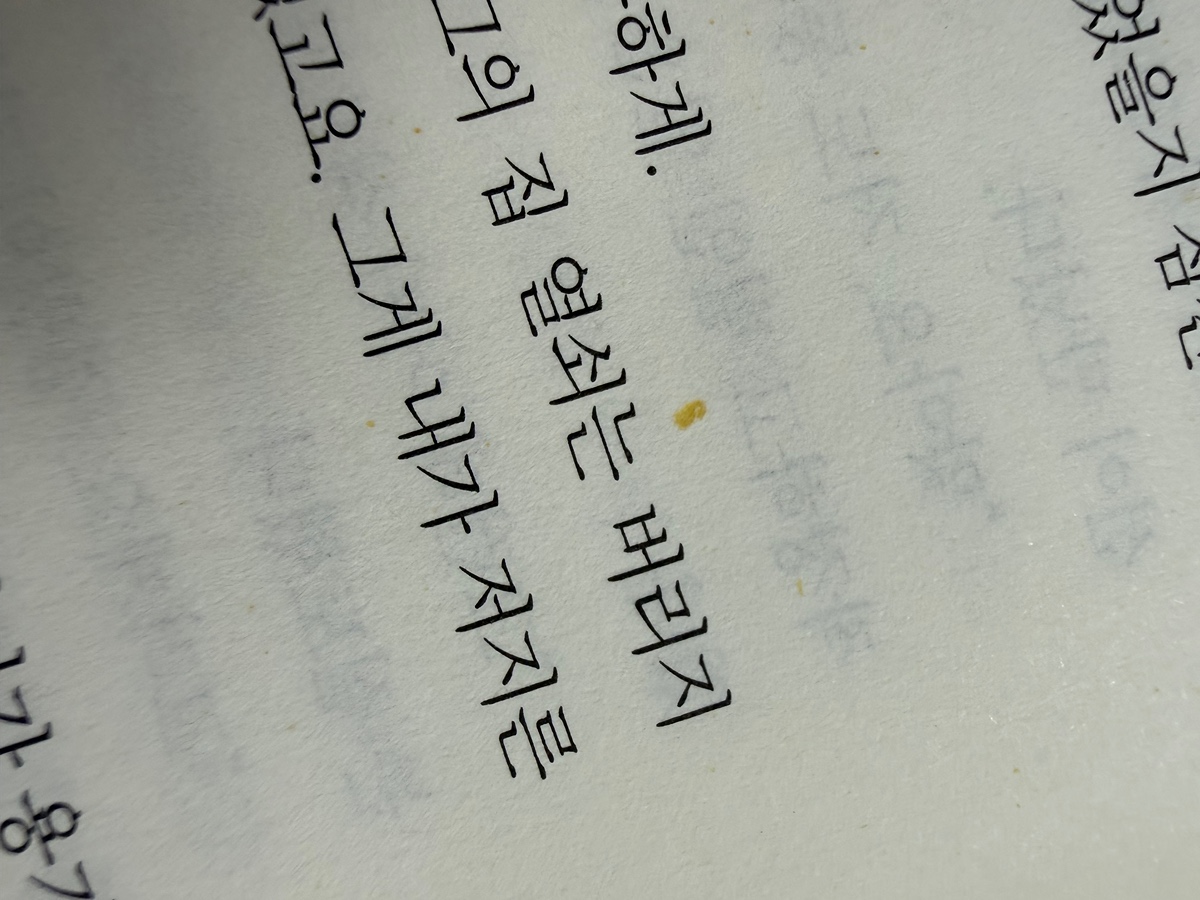 었을지
하게.
그의 집 열쇠는 버리지
고요. 그게 내가 저지른
가 용